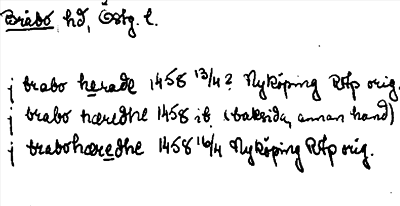 Bråbo, hd, Östg. l.
j brabo herade 1458 13/4? Nyköping RAp orig.
j brabo hæredhe 1458 ib. (baksida, annan hand)
j brabohæredhe 1458 16/4 Nyköping RAp orig.